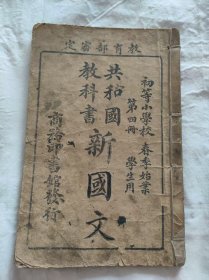 定審部育教
初等小學校 春季始業
第四冊 學生用
共和國
教科書
新國文
商務印書館發行